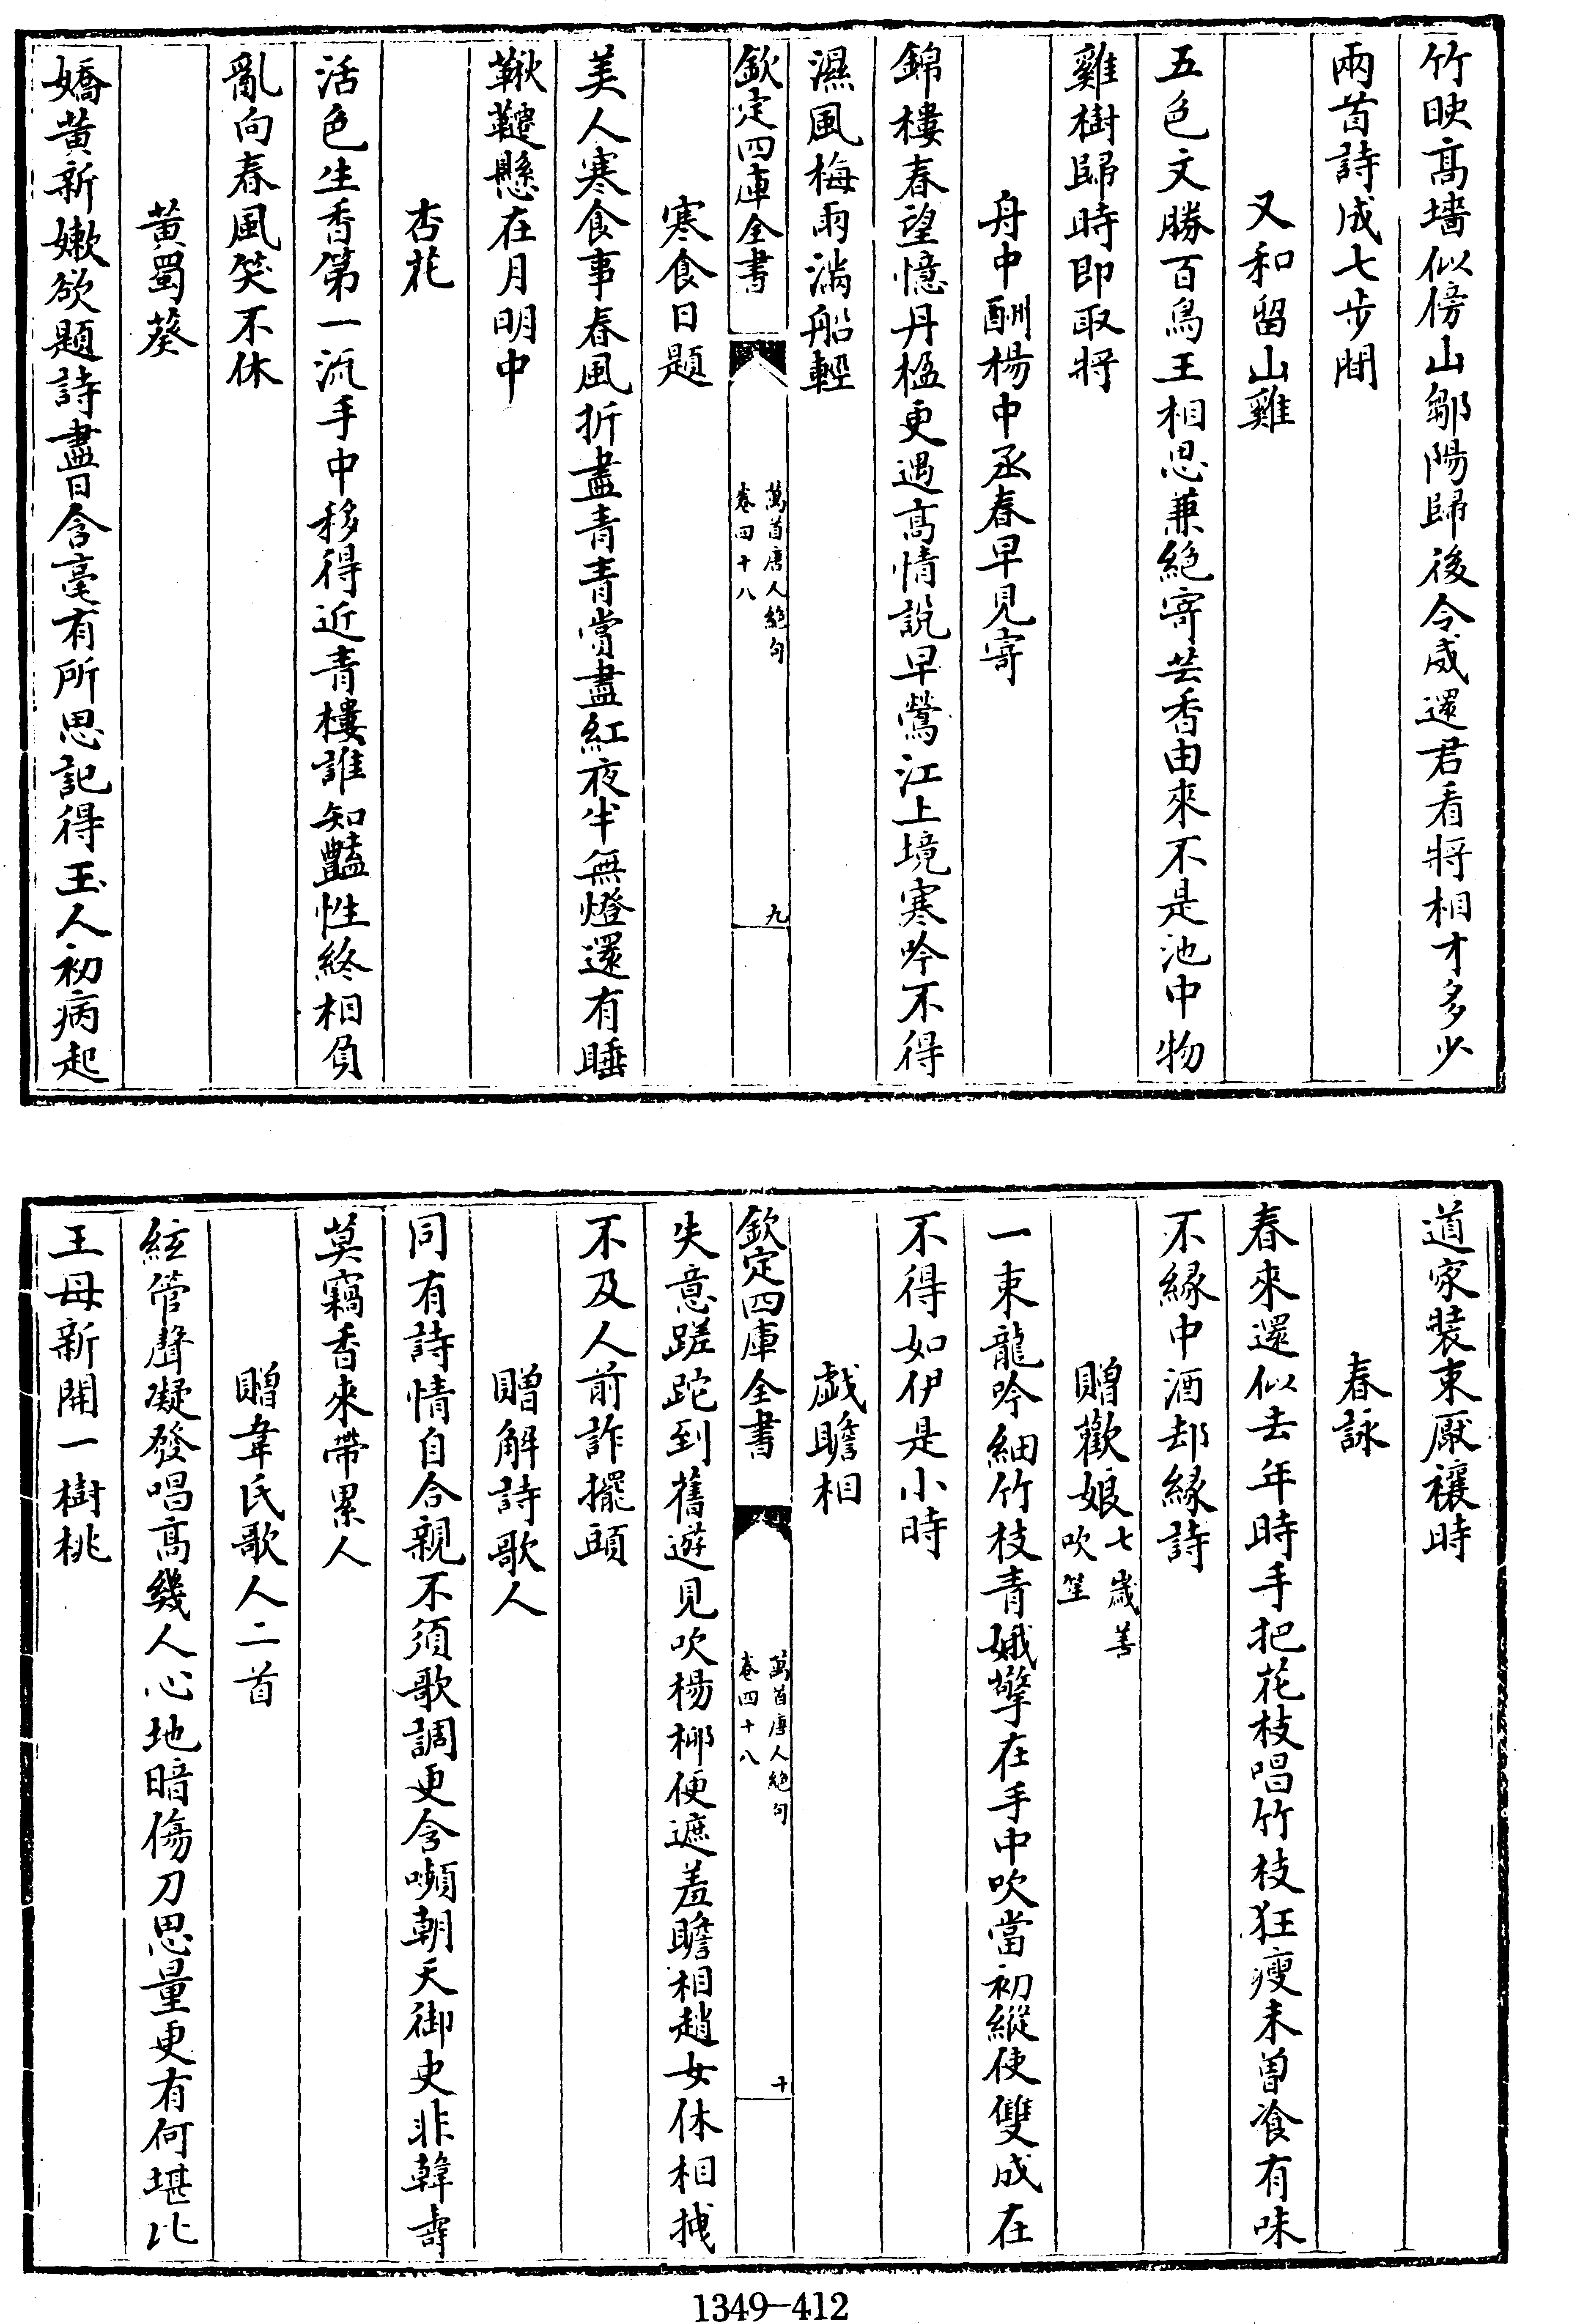 竹映高墻似傍山鄒陽歸後令威還君看將相才多少
兩首詩成七步間
又和留山雞
五色文勝百鳥王相思兼絕寄芸香由來不是池中物
雞樹歸時即取將
舟中酬楊中丞春早見寄
錦樓春望憶丹楹更遇高情說早鶯江上境寒吟不得
濕風梅雨滿船輕
欽定四庫全書
萬首唐人絕句
卷四十八
九
寒食日題
美人寒食事春風折盡青青賞盡紅夜半無燈還有睡
鞦韆懸在月明中
杏花
活色生香第一流手中移得近青樓誰知豔性終相負
亂向春風笑不休
黃蜀葵
嬌黃新嫩欲題詩盡日含毫有所思記得玉人初病起
道家裝束厭禳時
春詠
春來還似去年時手把花枝唱竹枝狂瘦未曾飡有味
不緣中酒却緣詩
贈歡娘七歲善吹笙
一束龍吟細竹枝青娥擎在手中吹當初縱使雙成在
不得如伊是小時
戲瞻相
欽定四庫全書
萬首唐人絕句
卷四十八
十
失意蹉跎到舊遊見吹楊柳便遮羞瞻相趙女休相拽
不及人前詐擺頭
贈解詩歌人
同有詩情自合親不須歌調更含嚬朝天御史非韓壽
莫竊香來帶累人
贈韋氏歌人二首
絃管聲凝發唱高幾人心地暗傷刀思量更有何堪比
王母新開一樹桃
1349—412